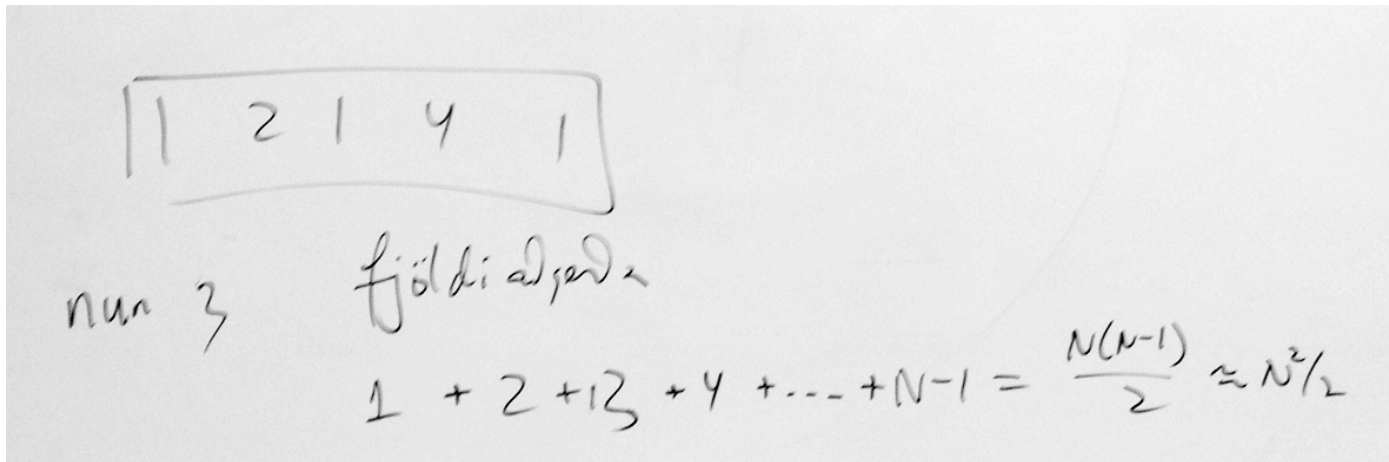 1 2 1 4 1
num 3 fjöldi aðgerða
1 + 2 + 3 + 4 + .... + N-1 = N(N-1)/2 ≈ N²/2